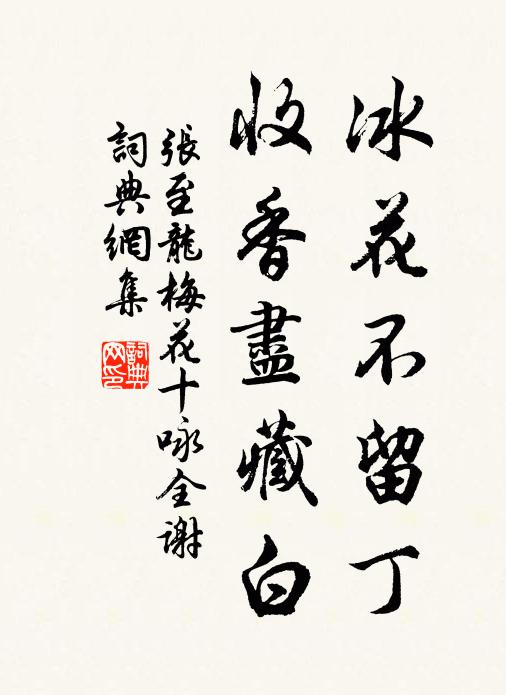 冰花不留丁
收香盡藏白
張至龍梅花十咏全謝
詞典網集
詞典
网印